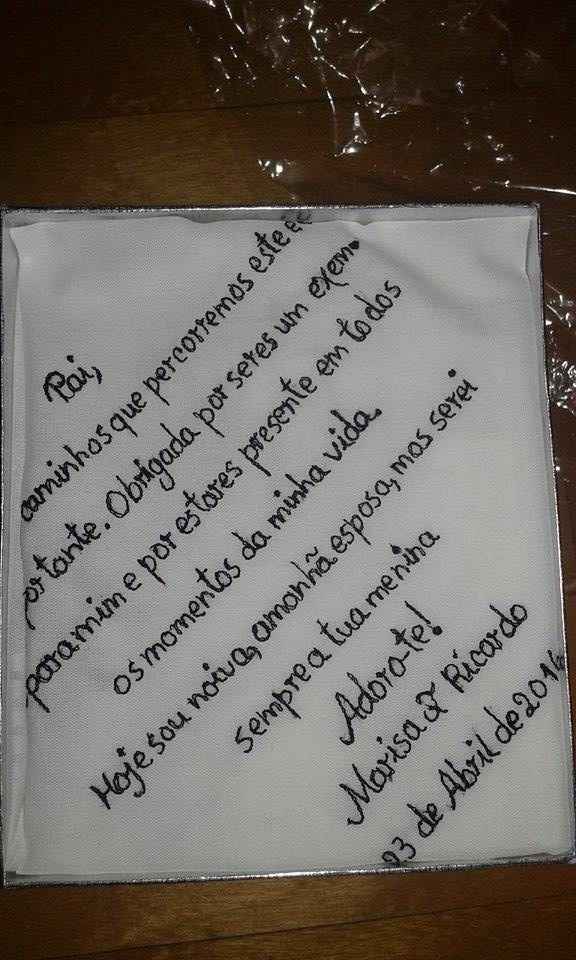 Pai,
caminhos que percorremos este é
ortante. Obrigada por seres um exem.
para mim e por estares presente em todos
os momentos da minha vida.
Hoje sou noiva, amanhã esposa, mas serei
sempre a tua menina
Adoro-te!
Marisa & Ricardo
23 de Abril de 2016